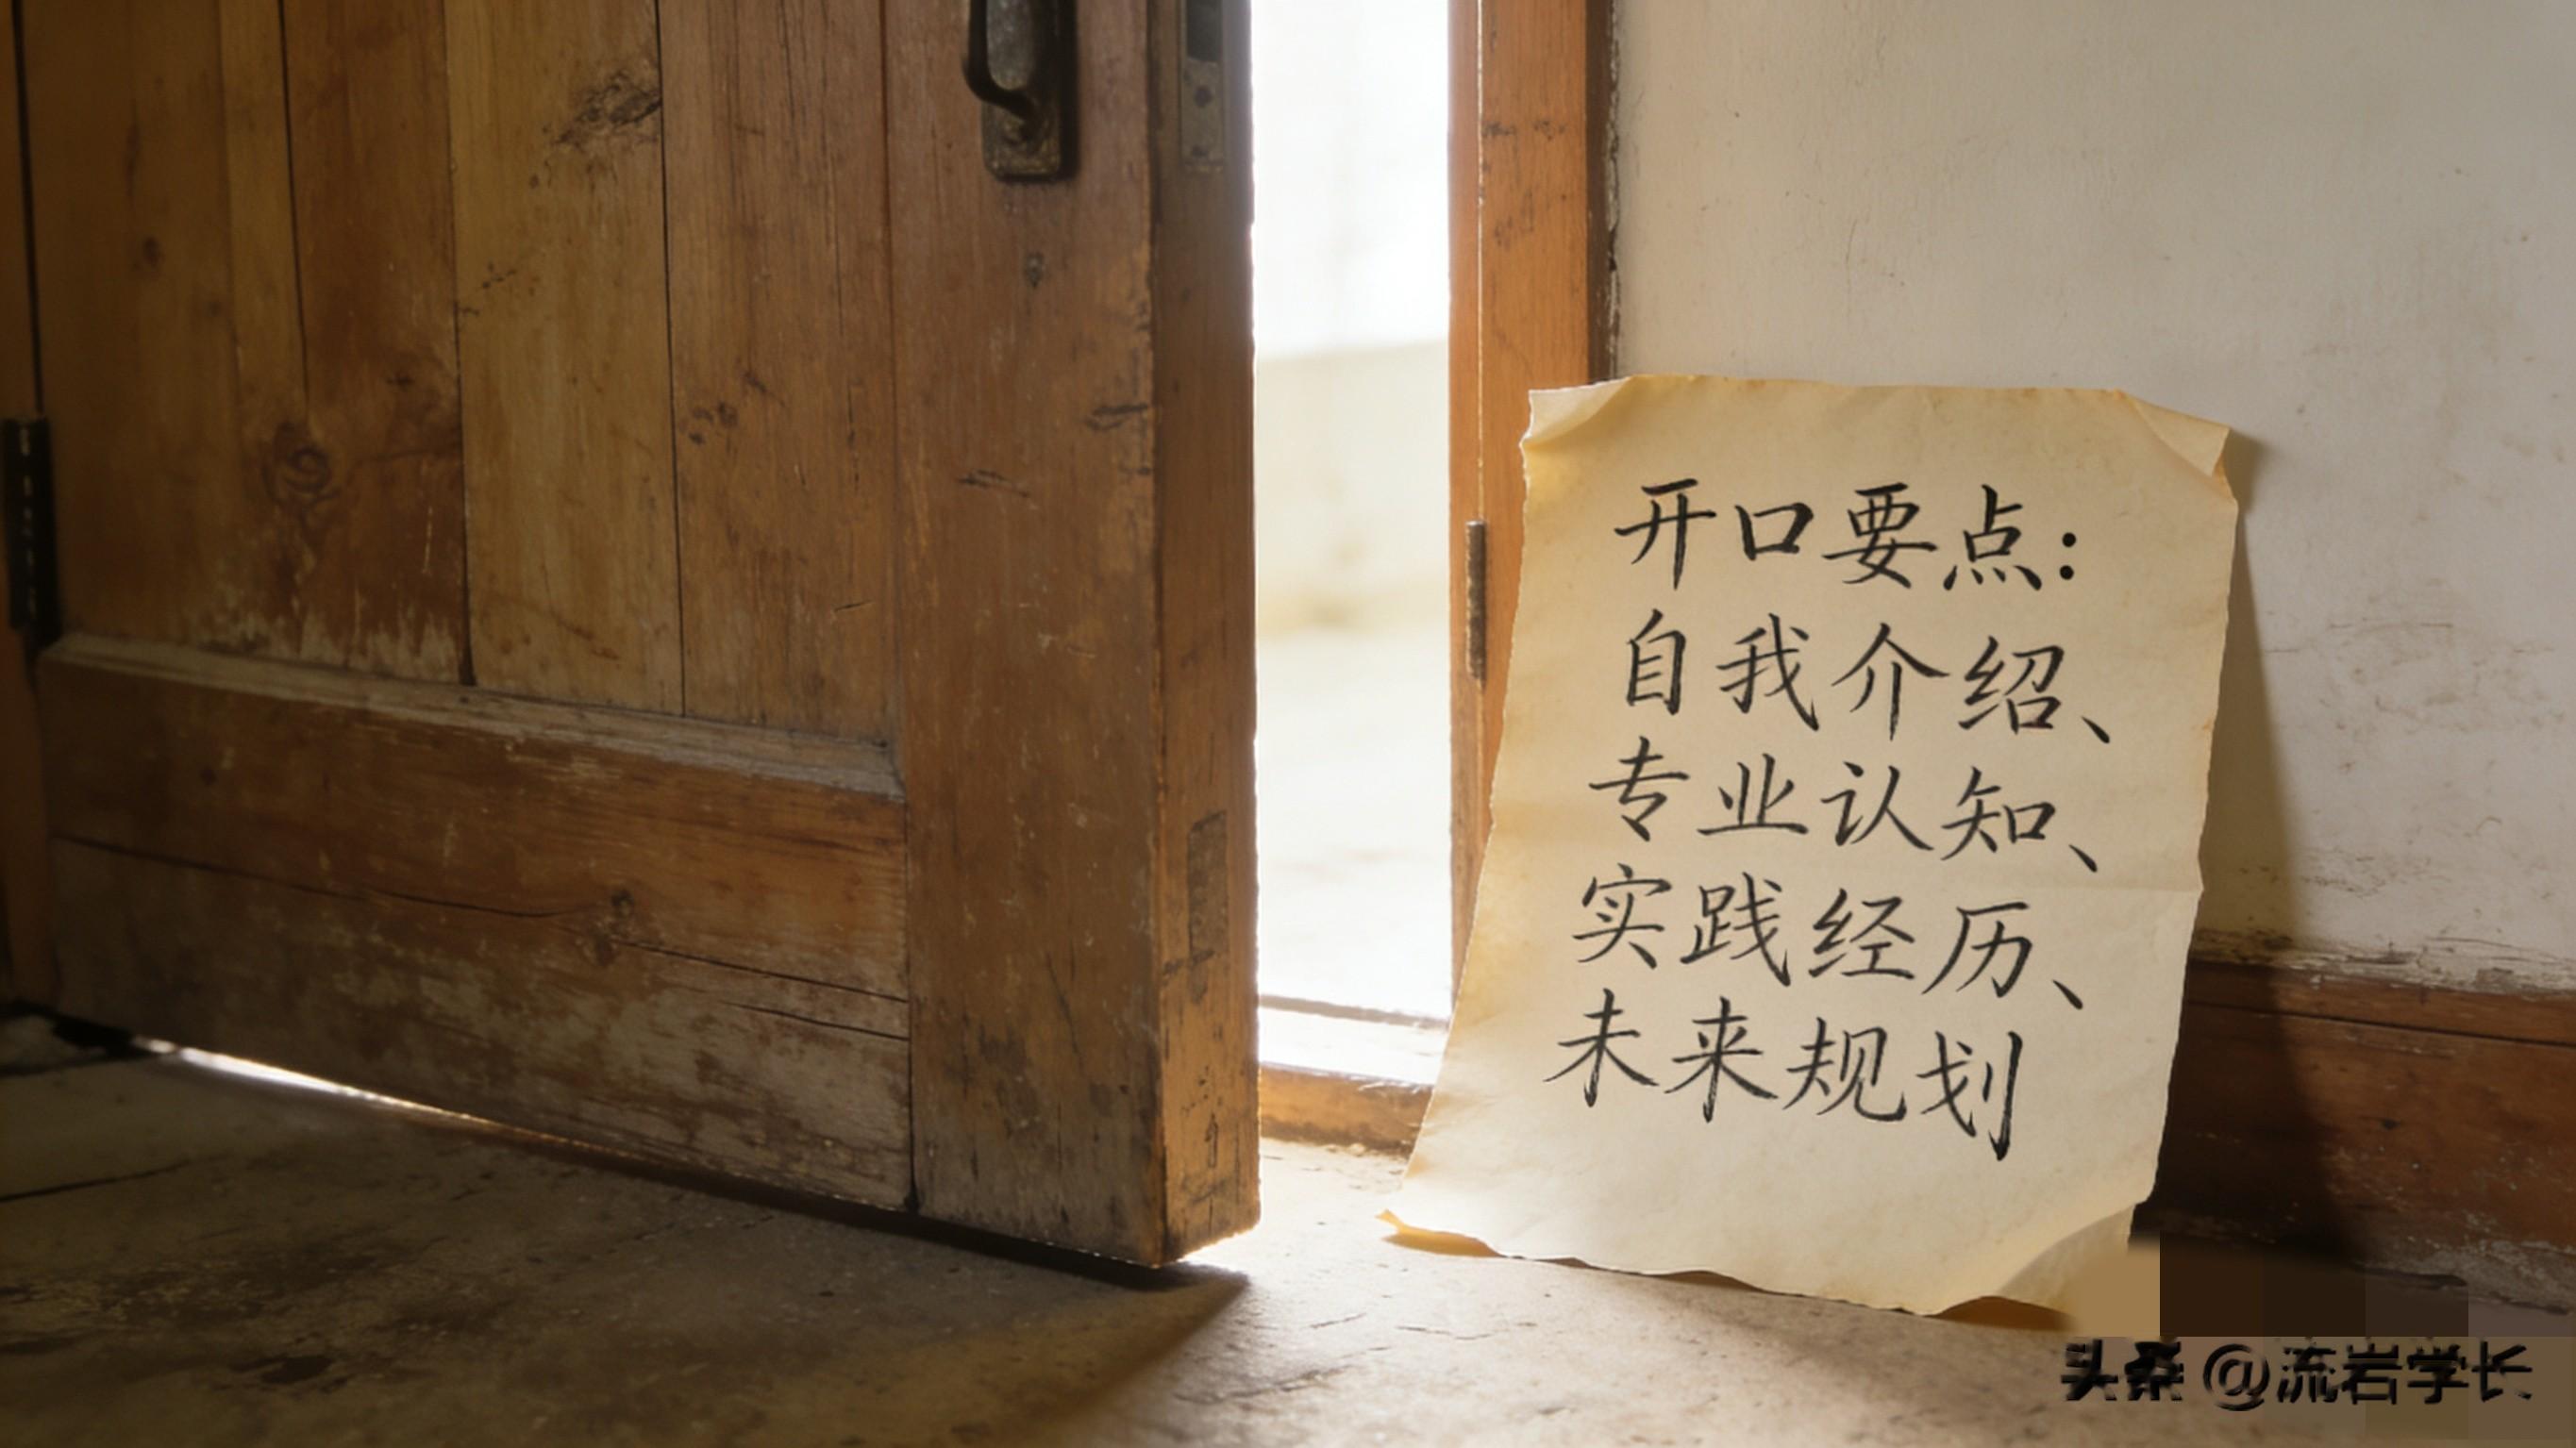 开口要点：
自我介绍、
专业认知、
实践经历、
未来规划
头条 @流岩学长